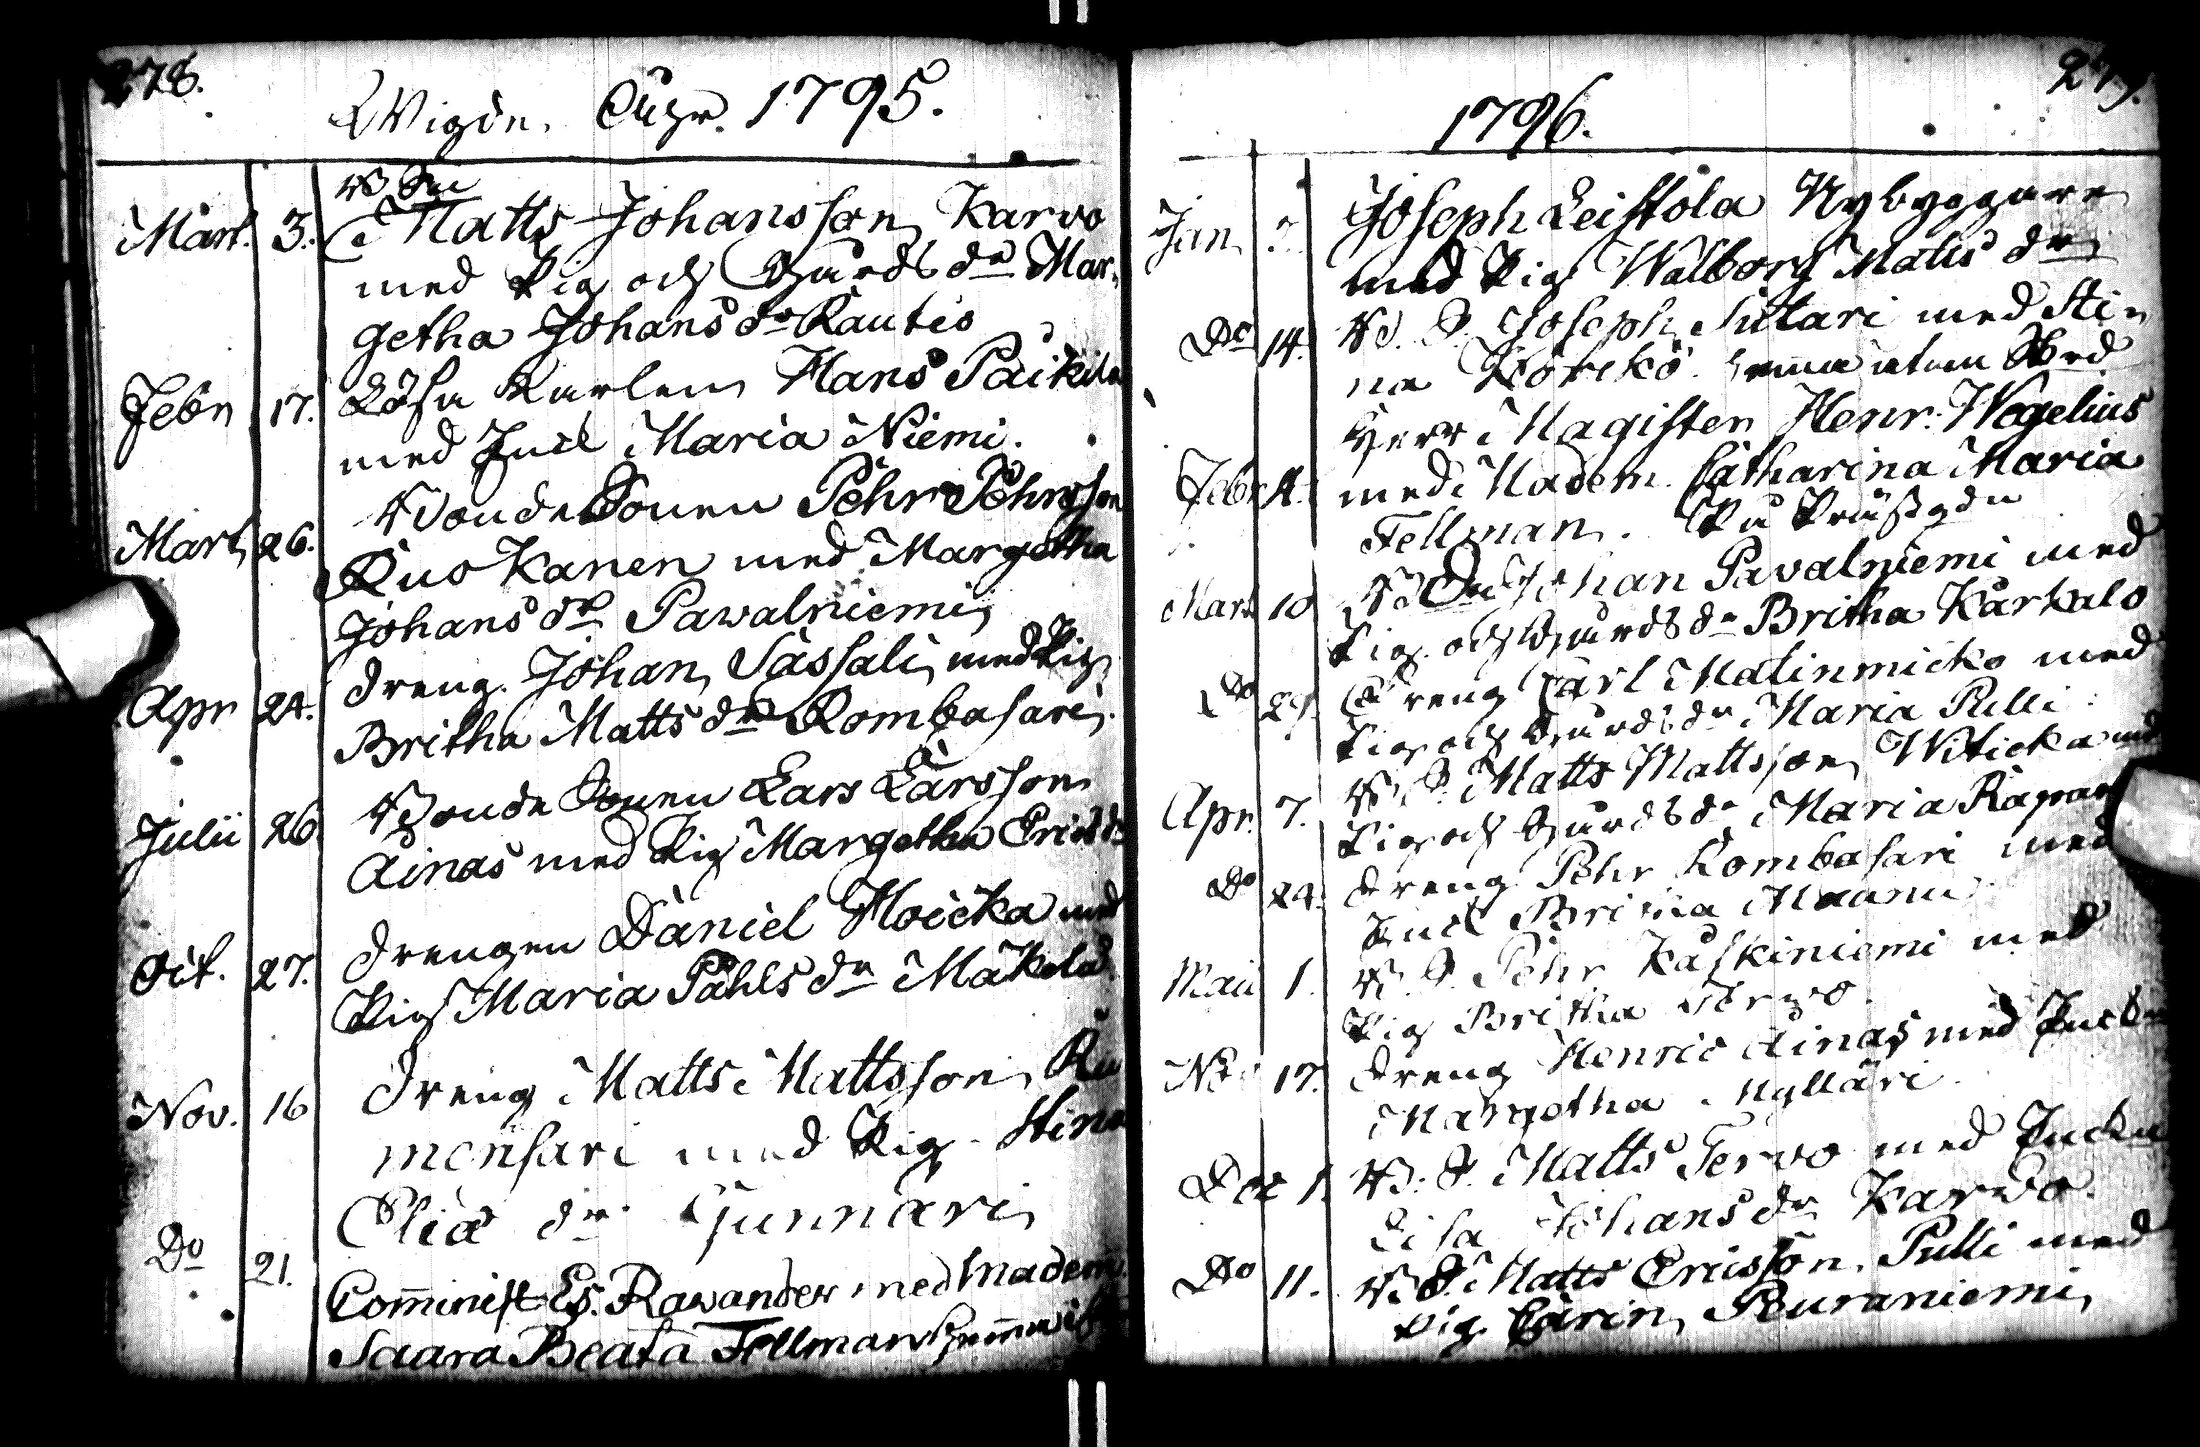 278.
Wigde. Åhr. 1795.
B. Son
Mart. 3. Matts Johansson Karvo
med Pig. och Gårds dr Mar-
getha Johans dr Rautio
Febr. 17. Lösa Karlen Hans Paikila
med Enck. Maria Niemi.
Mart. 26. Bonde Sonen Pehr Pehrsson
Ruokanen med Margetha
Johans dr Pawalniemi
Apr. 24. Dreng. Johan Sassali med Pig.
Britha Matts dr Rombasari.
Julii 26. Bonde Sonen Lars Larsson
Ainas med Pig. Margetha Erics dr
Oct. 27. Drengen Daniel Hoicka med
Pig. Maria Påhls dr Mäkelä.
Nov. 16 Dreng Matts Mattsson Ku
mensari med Pig. Stina
Eliæ dr Gunnari
Do 21. Comminist. Es. Rawander med Madem.
Saara Beata Fellman hemma
279.
1796.
Jan. Joseph Leistola Nybyggare
med Pig. Walborg Matts dr
Do 14. B. S. Joseph Sutari med Sti-
na Körckö. hemma utom Bord
Herr Magister Henr. Wegelius
Febr. 4. med Madem. Catharina Maria
Fellman.
Mart. 10 B. Son Johan Pavalniemi med
Pig. och Gårds dr Britha Karkalo
Do 29. Dreng Carl Matinmicko med
Pig. och Gårds dr Maria Pulli.
Apr. 7. B. S. Matts Mattsson Witicka med
Pig. och Gårds dr Maria
Do 24. Dreng Pehr Rombasari med
Enck. Britha Maanu
Maii 1. B. S. Pehr Kaskiniemi med
Pig. Britha Tervo.
Nov. 17. Dreng Henric Ainas med Enck.
Margetha Mylläri.
Dec. 1. B. S. Matts Tervo med Enck.
Lisa Johans dr Karvo.
Do 11. B. S. Matts Ericsson Pulli med
Pig. Carin Peuraniemi